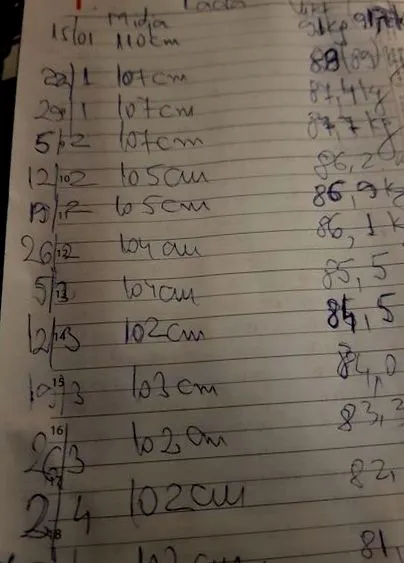 Midja
15/01 110cm 91kg
22/1 107cm 89
29/1 107cm 87,4kg
5/2 107cm 87,7kg
12/2 105cm 86,2
19/2 105cm 86,9k
26/2 104cm 86,1k
5/3 104cm 85,5
12/3 102cm 84,5
19/3 103cm 84,0
26/3 102cm 83,3
2/4 102cm 82,
102cm 81,